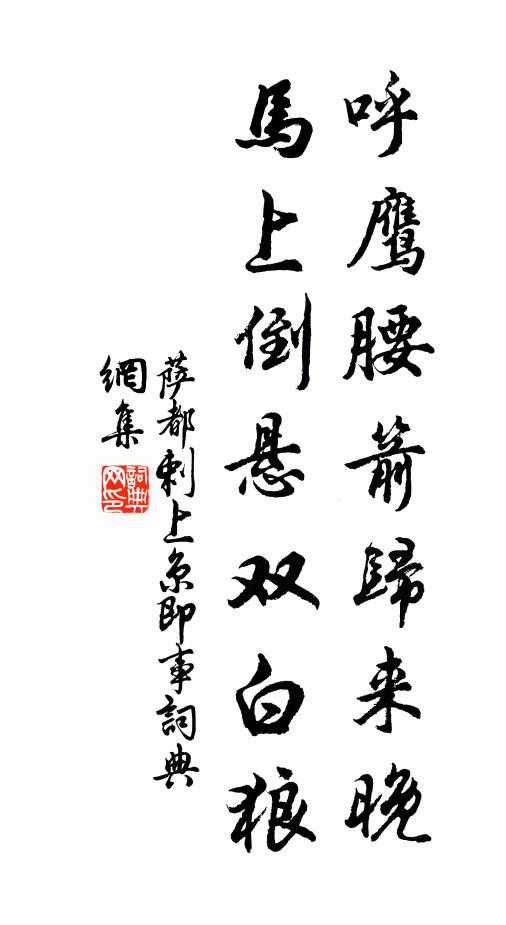 呼鹰腰箭歸来晚
馬上倒悬双白狼
薩都剌上京即事詞典
網集
詞典
网印